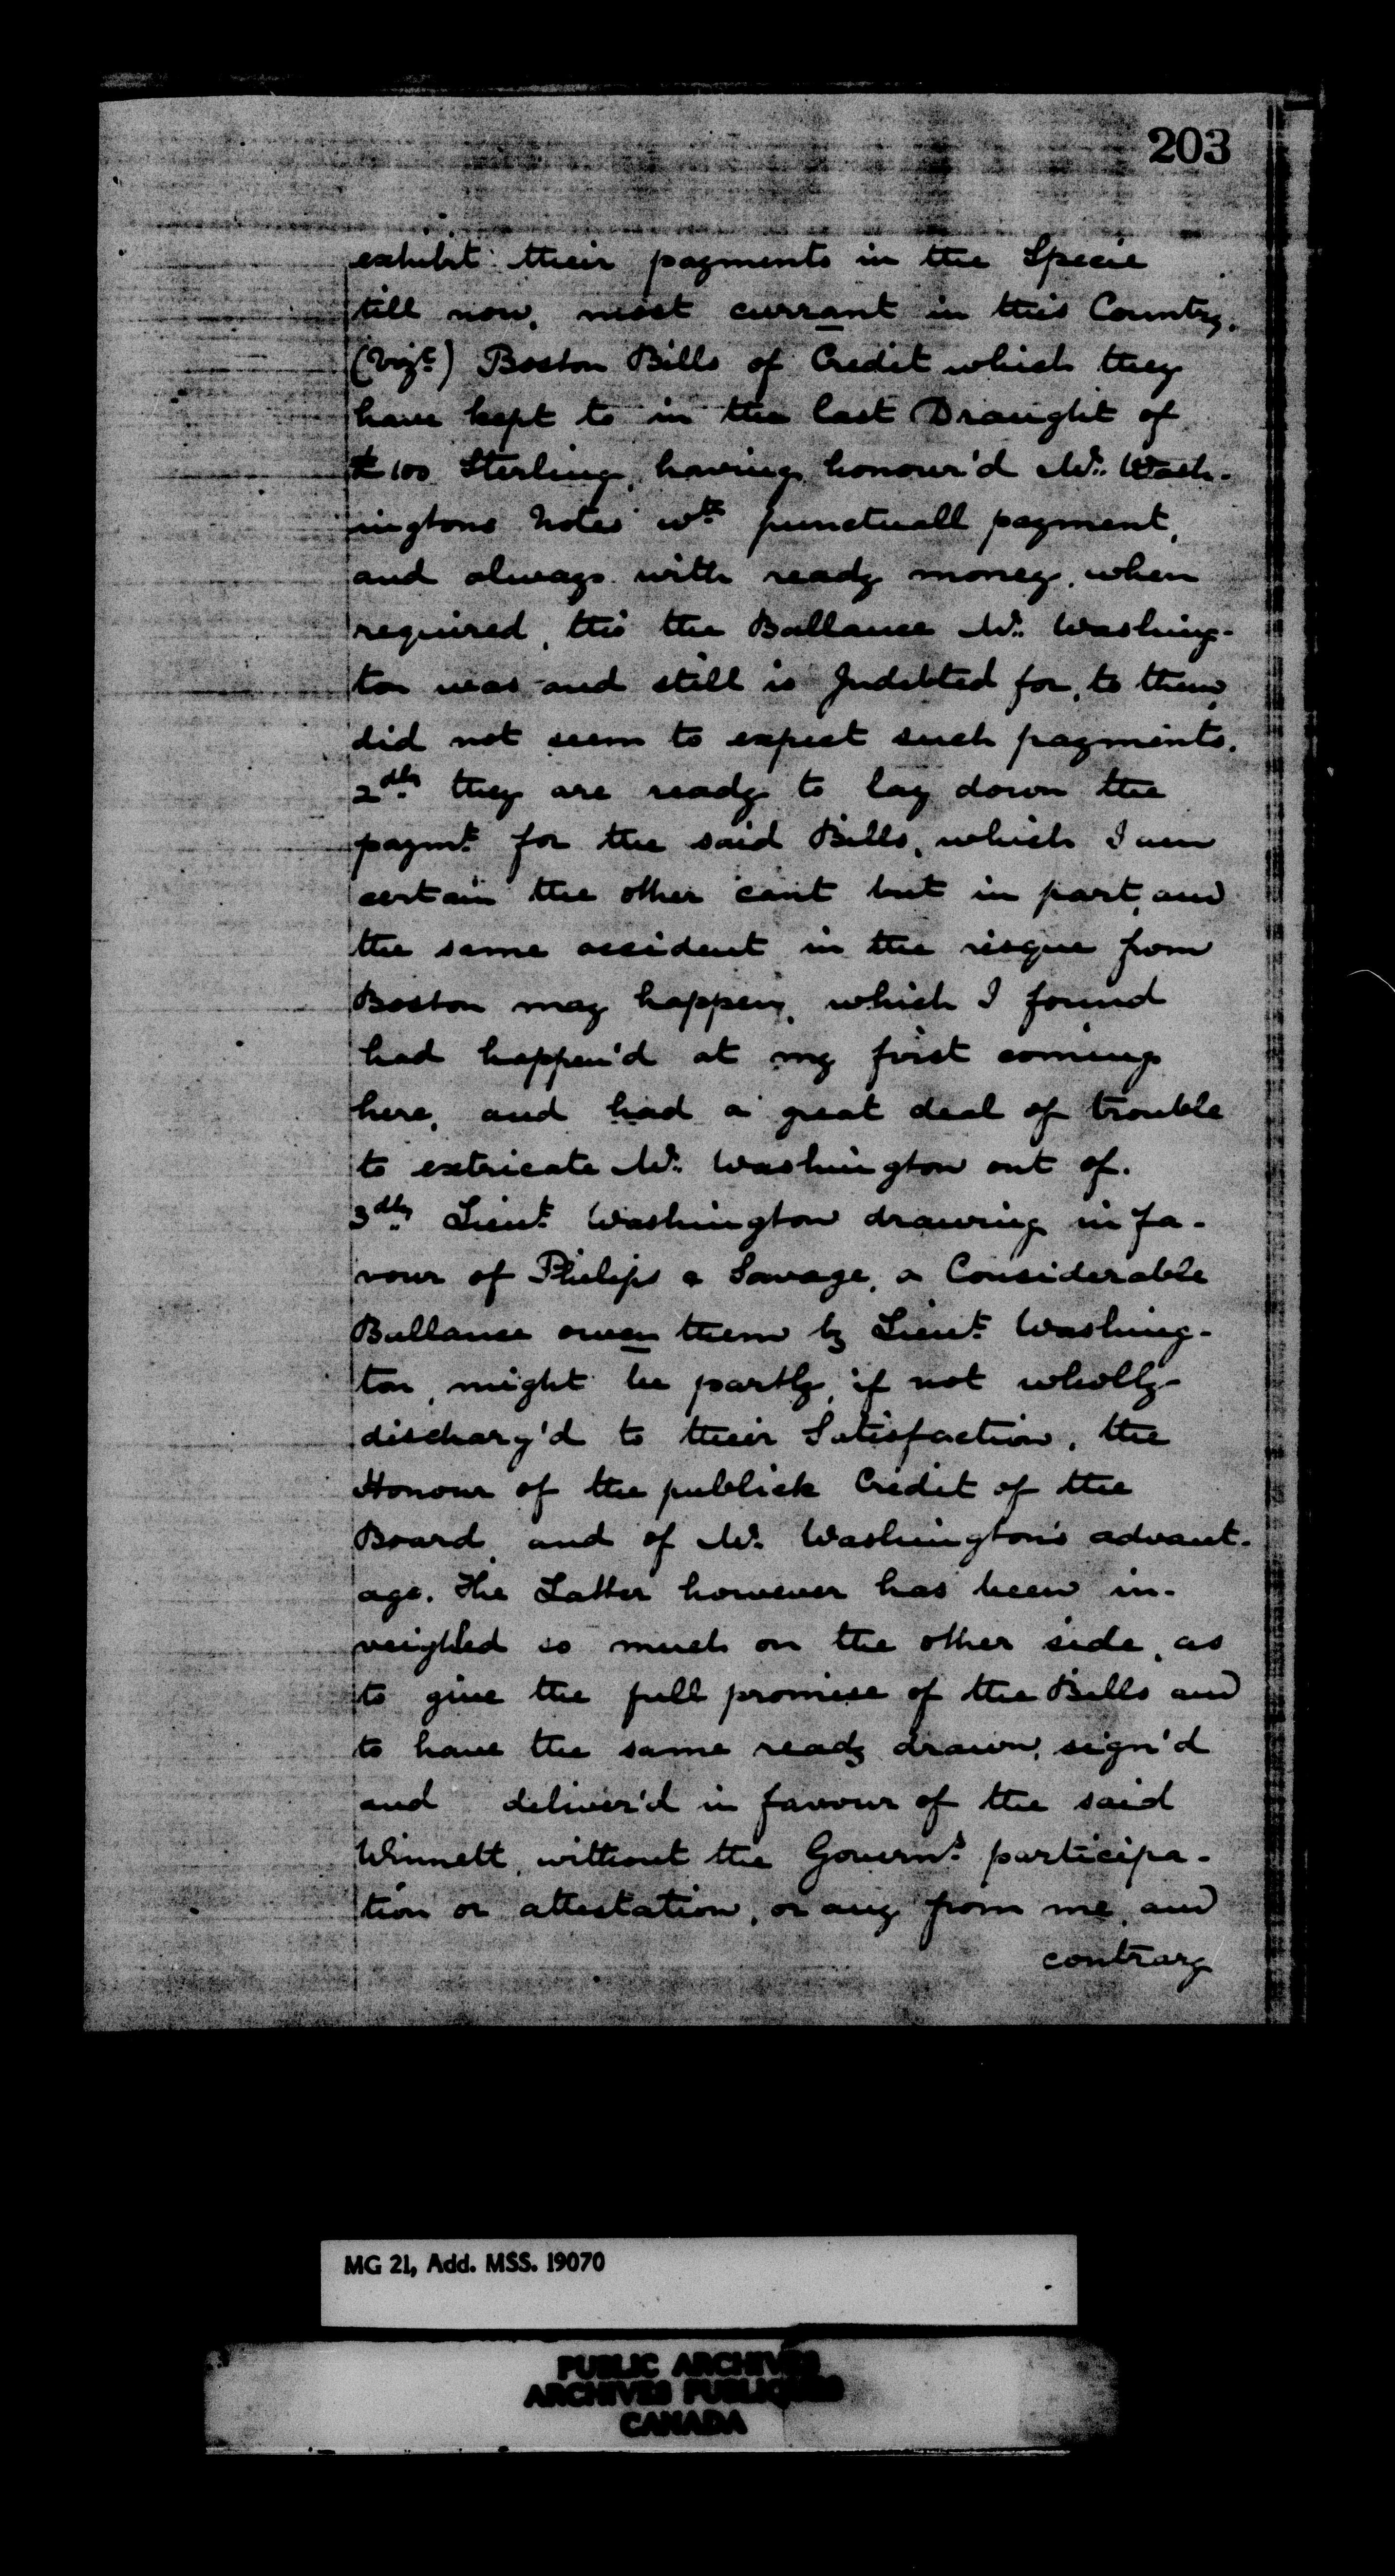 203
exhibit their payments in the Specie
till now, most currant in this Country.
(Vizt.) Boston Bills of Credit which they
have kept to in the last Draught of
£100 Sterling, having honour'd Mr. Wash-
ingtons Notes wth punctuall payment,
and always with ready money, when
required, tho the Ballance Mr. Washing-
ton was and still is Indebted for, to them,
did not seem to expect such payments.
2dly. they are ready to lay down the
paymt. for the said Bills, which I am
certain the other cant but in part, and
the same accident in the risque from
Boston may happen, which I found
had happen'd at my first coming
here, and had a great deal of trouble
to extricate Mr. Washington out of.
3dly. Lieut. Washington drawing in fa-
vour of Philips & Savage, a Considerable
Ballance owen them by Lieut. Washing-
ton, might be partly, if not wholly
discharg'd to their Satisfaction, the
Honour of the publick Credit of the
Board, and of Mr. Washington's advant-
age. The Latter however has been in-
veighled so much on the other side, as
to give the full promise of the Bills and
to have the same ready drawn, sign'd
and deliver'd in favour of the said
Winnett, without the Governrs. participa-
tion or attestation, or any from me, and
contrary
MG 21, Add. MSS. 19070
PUBLIC ARCHIVES
ARCHIVES PUBLIQUES
CANADA